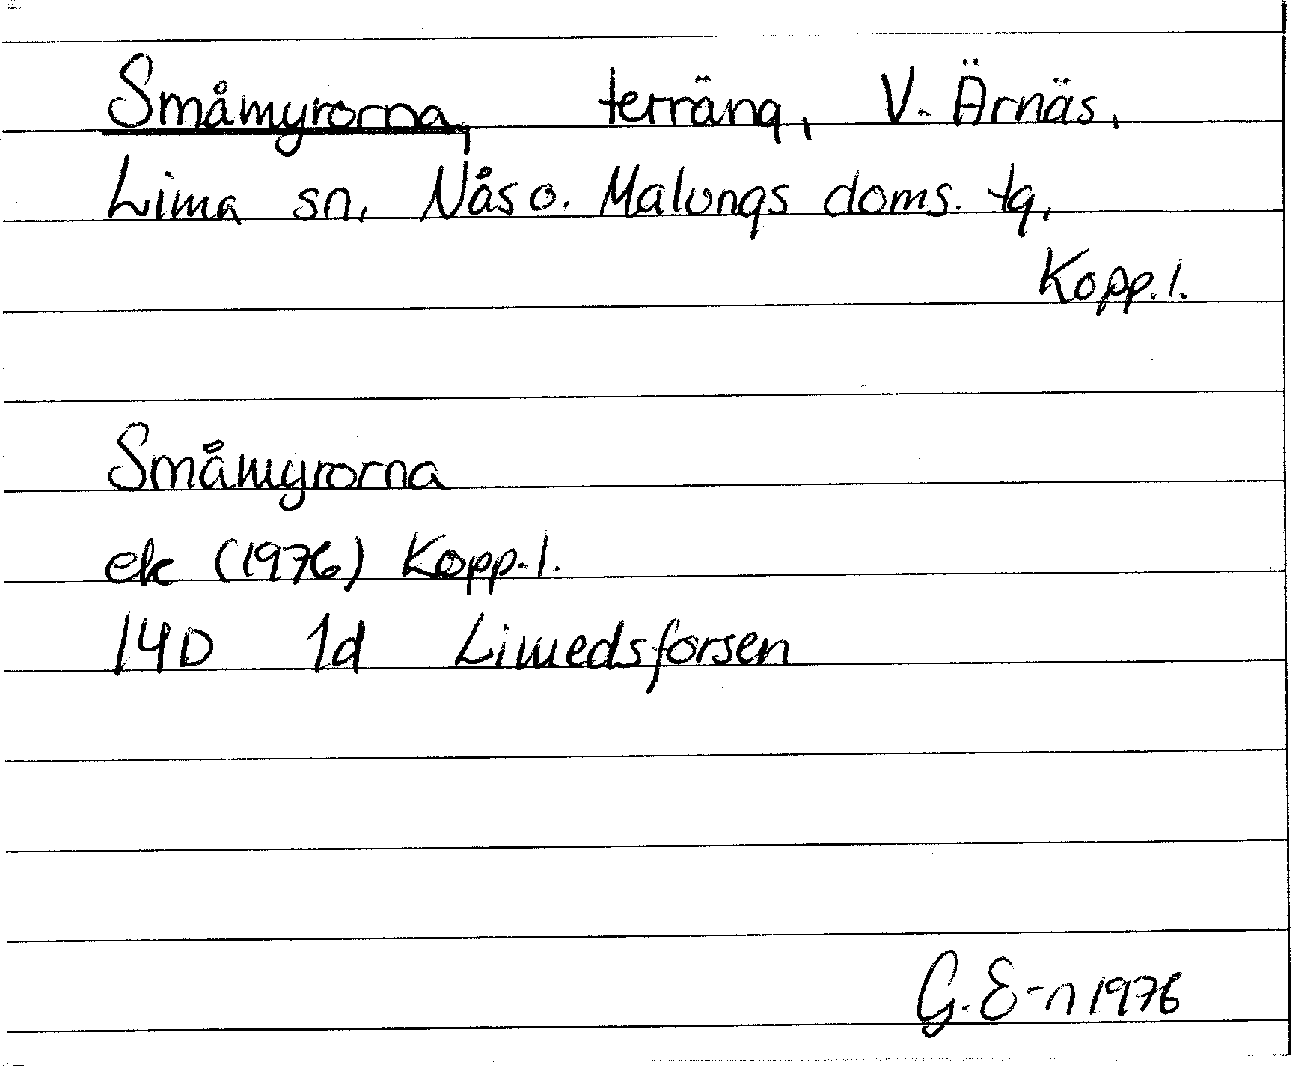 Småmyrorna, terräng, V. Ärnäs,
Lima sn, Nås o. Malungs doms. tg,
Kopp. l.
Småmyrorna
ek (1976) Kopp. l.
14D 1d Limedsforsen
G. E-n 1976